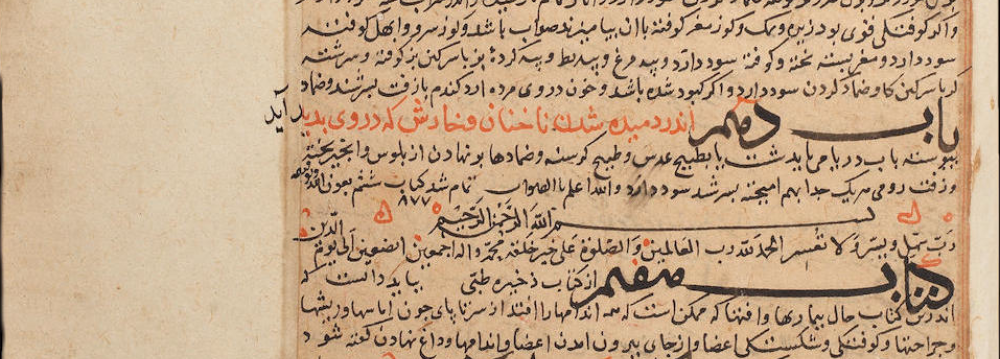 واگر کوفتگی قوی بود زیره و نمک و کوز مغز کوفته با ان بیامیزند صواب باشد و کوز سرو و ابهل کوفته
سود دارد و مغز پسته پخته و کوفته سود دارد و پیه مرغ و پیه بط و پیه کرده بز با سرکین بز کوفته و سرشته
کر با سرکین کاو ضماد کردن سود دارد و اکر کبود شده باشد و خون در وی مرده ارد کندم با زفت بسرشند و ضماد
باب دهم اندر دمیده شدن ناخنان و خارش که در وی بدید آید
پیوسته باب دریا می باید شست یا بطبیخ عدس و طبیخ کرسنه و ضمادها بر نهادن از بلوس و انجیر پخته
و زفت رومی هر یک جدا بهم امیخته بسرشد سود دارد والله اعلم بالصواب تمام شد کتاب ششم بعون الله
۸۷۷
بسم الله الرحمن الرحیم
رب سهل ویسر ولا تعسر الحمد لله رب العالمین والصلوة علی خیر خلقه محمد واله اجمعین الی یوم الدین
کتاب هفتم از کتاب ذخیره طبی بباید دانست که
اندرین کتاب حال بیماریها وافتها که ممکن است که همه اندامها را افتد از سر تا پای چون اماسها و ریشها
و جراحتها و کوفتگی و شکستگی اعضا و از جای بیرون امدن اعضا و اندامها و داغ نهادن کفته شود